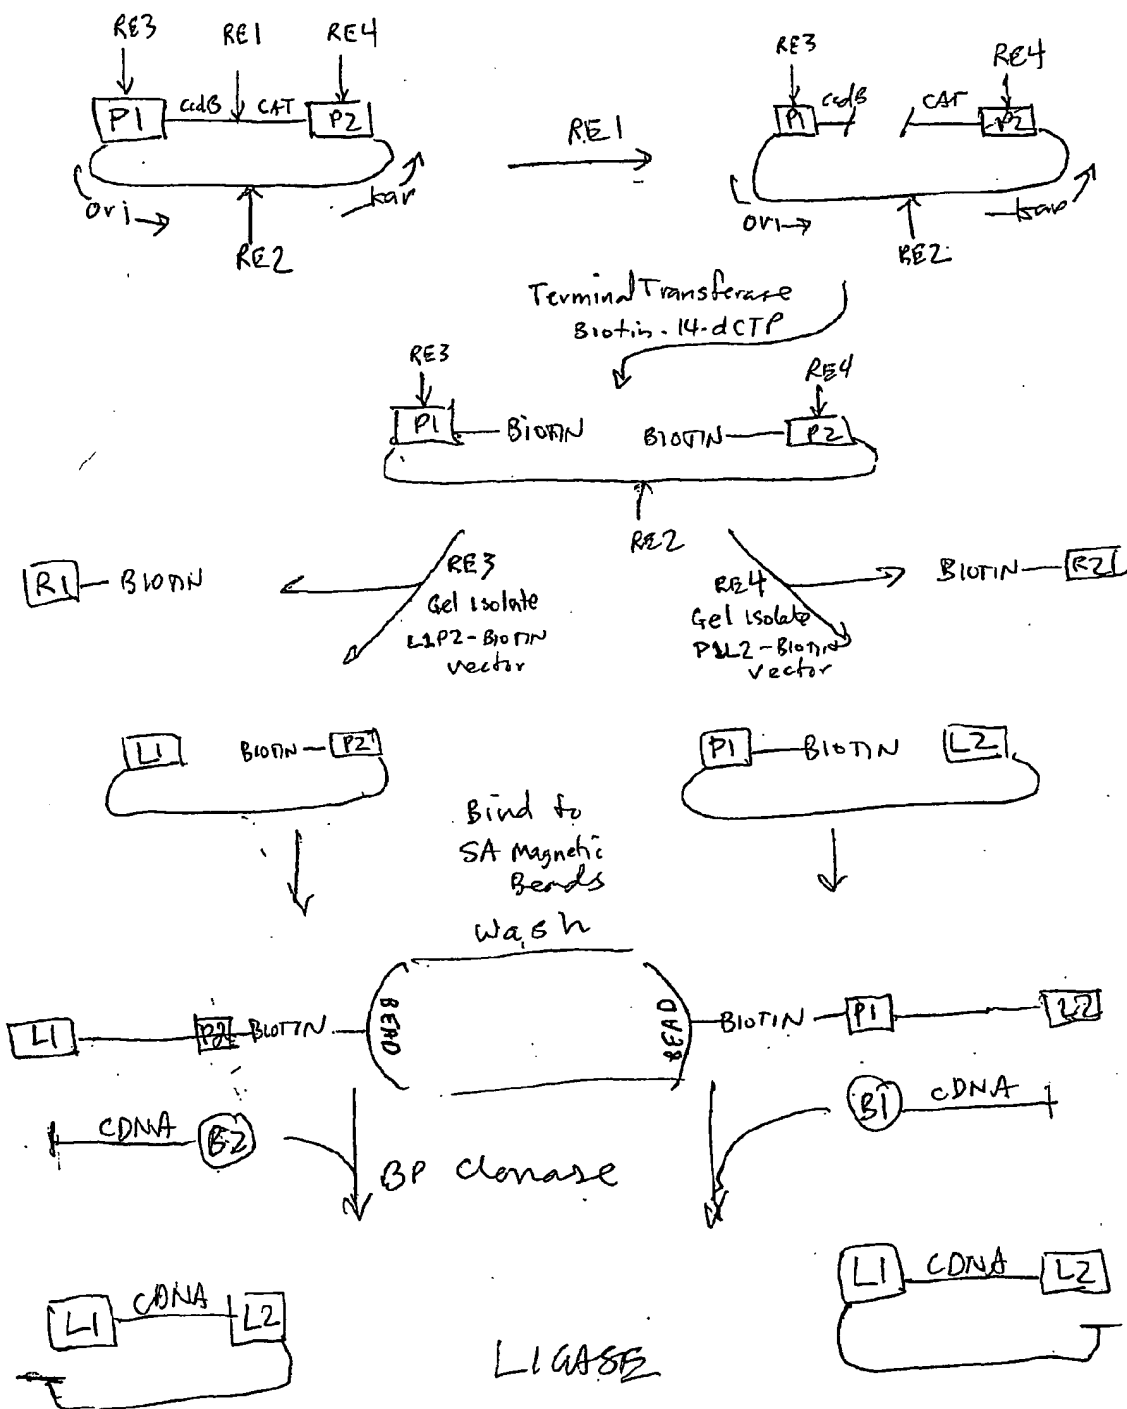 RE3 RE1 RE4
P1 ccdB CAT P2
ori kar
RE2
RE1
RE3 RE4
P1 ccdB CAT P2
ori kar
RE2
Terminal Transferase
Biotin-14-dCTP
RE3 RE4
P1 BIOTIN BIOTIN P2
RE2
R1 BIOTIN
RE3
Gel isolate
L1P2-Biotin
vector
RE4
Gel isolate
P1L2-Biotin
vector
BIOTIN R2
L1 BIOTIN P2
P1 BIOTIN L2
Bind to
SA Magnetic
Beads
Wash
L1 P2 BIOTIN BEAD
BEAD BIOTIN P1 L2
CDNA B2
B1 cDNA
BP Clonase
L1 CDNA L2
L1 CDNA L2
LIGASE